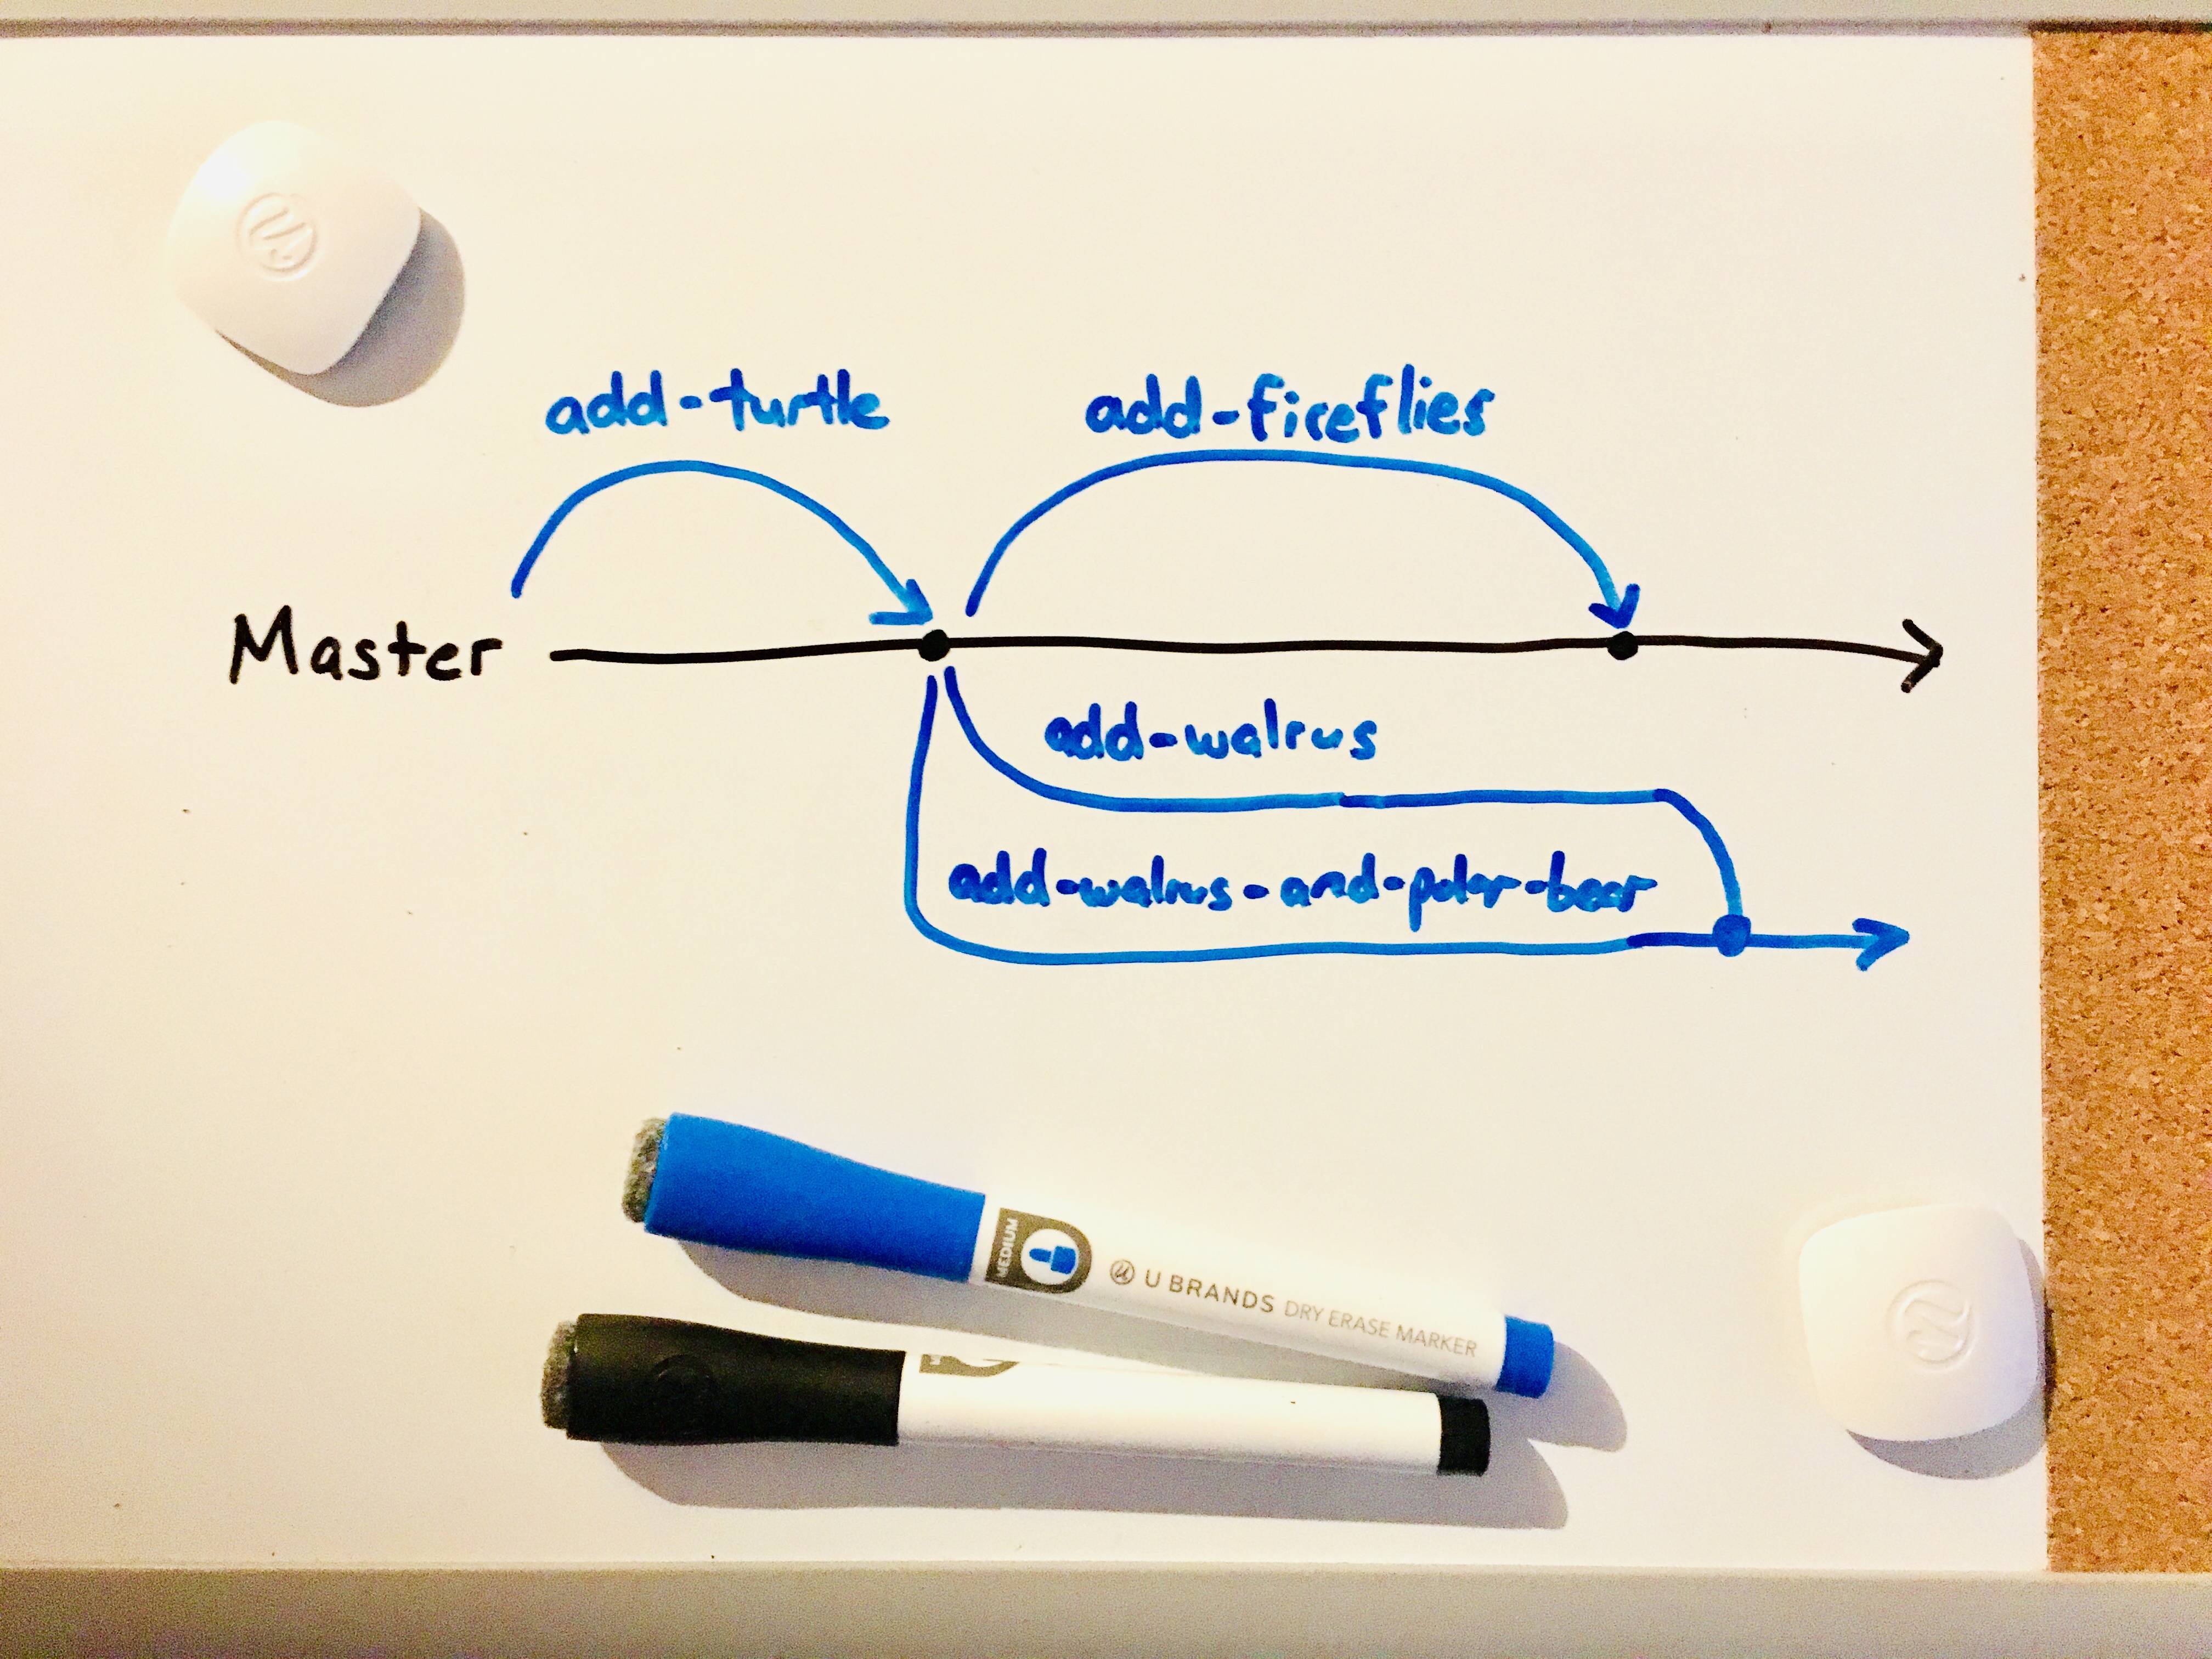 add-turtle
add-fireflies
Master
add-walrus
add-walrus-and-polar-bear
MEDIUM
U BRANDS DRY ERASE MARKER